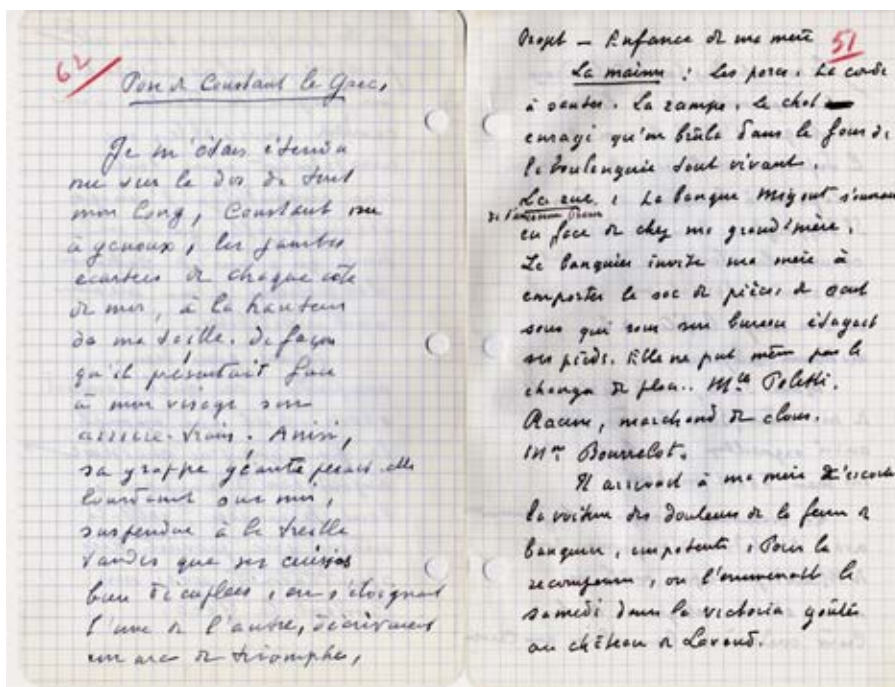 62
Pose de Constant le Grec.
Je m'étais étendu
nu sur le dos de tout
mon long, Constant nu
à genoux, les jambes
écartées de chaque côté
de moi, à la hauteur
de ma taille. de façon
qu'il présentait face
à mon visage son
arrière-train. Ainsi,
sa grappe géante pesait-elle
lourdement sur moi,
suspendue à la treille
tandis que ses cuisses
bien décuplées, en s'éloignant
l'une de l'autre, décrivaient
un arc de triomphe,
51
Projet — Enfance de ma mère
La maison : Les porcs. La corde
à sauter. La rampe. Le chat
enragé qu'on brûle dans le four de
la boulangerie tout vivant.
La rue : La banque Migout
en face de chez ma grand'mère.
Le banquier invite ma mère à
emporter le sac de pièces de cent
sous qui sous son bureau
ses pieds. Elle ne put même pas le
changer de place. Mlle
Racine, marchand de clous.
Mme Bourrelot.
Il arrivait à ma mère d'escorter
la voiture des douleurs de la femme du
banquier, impotente. Pour la
récompenser, on l'emmenait le
samedi dans la victoria goûter
au château de